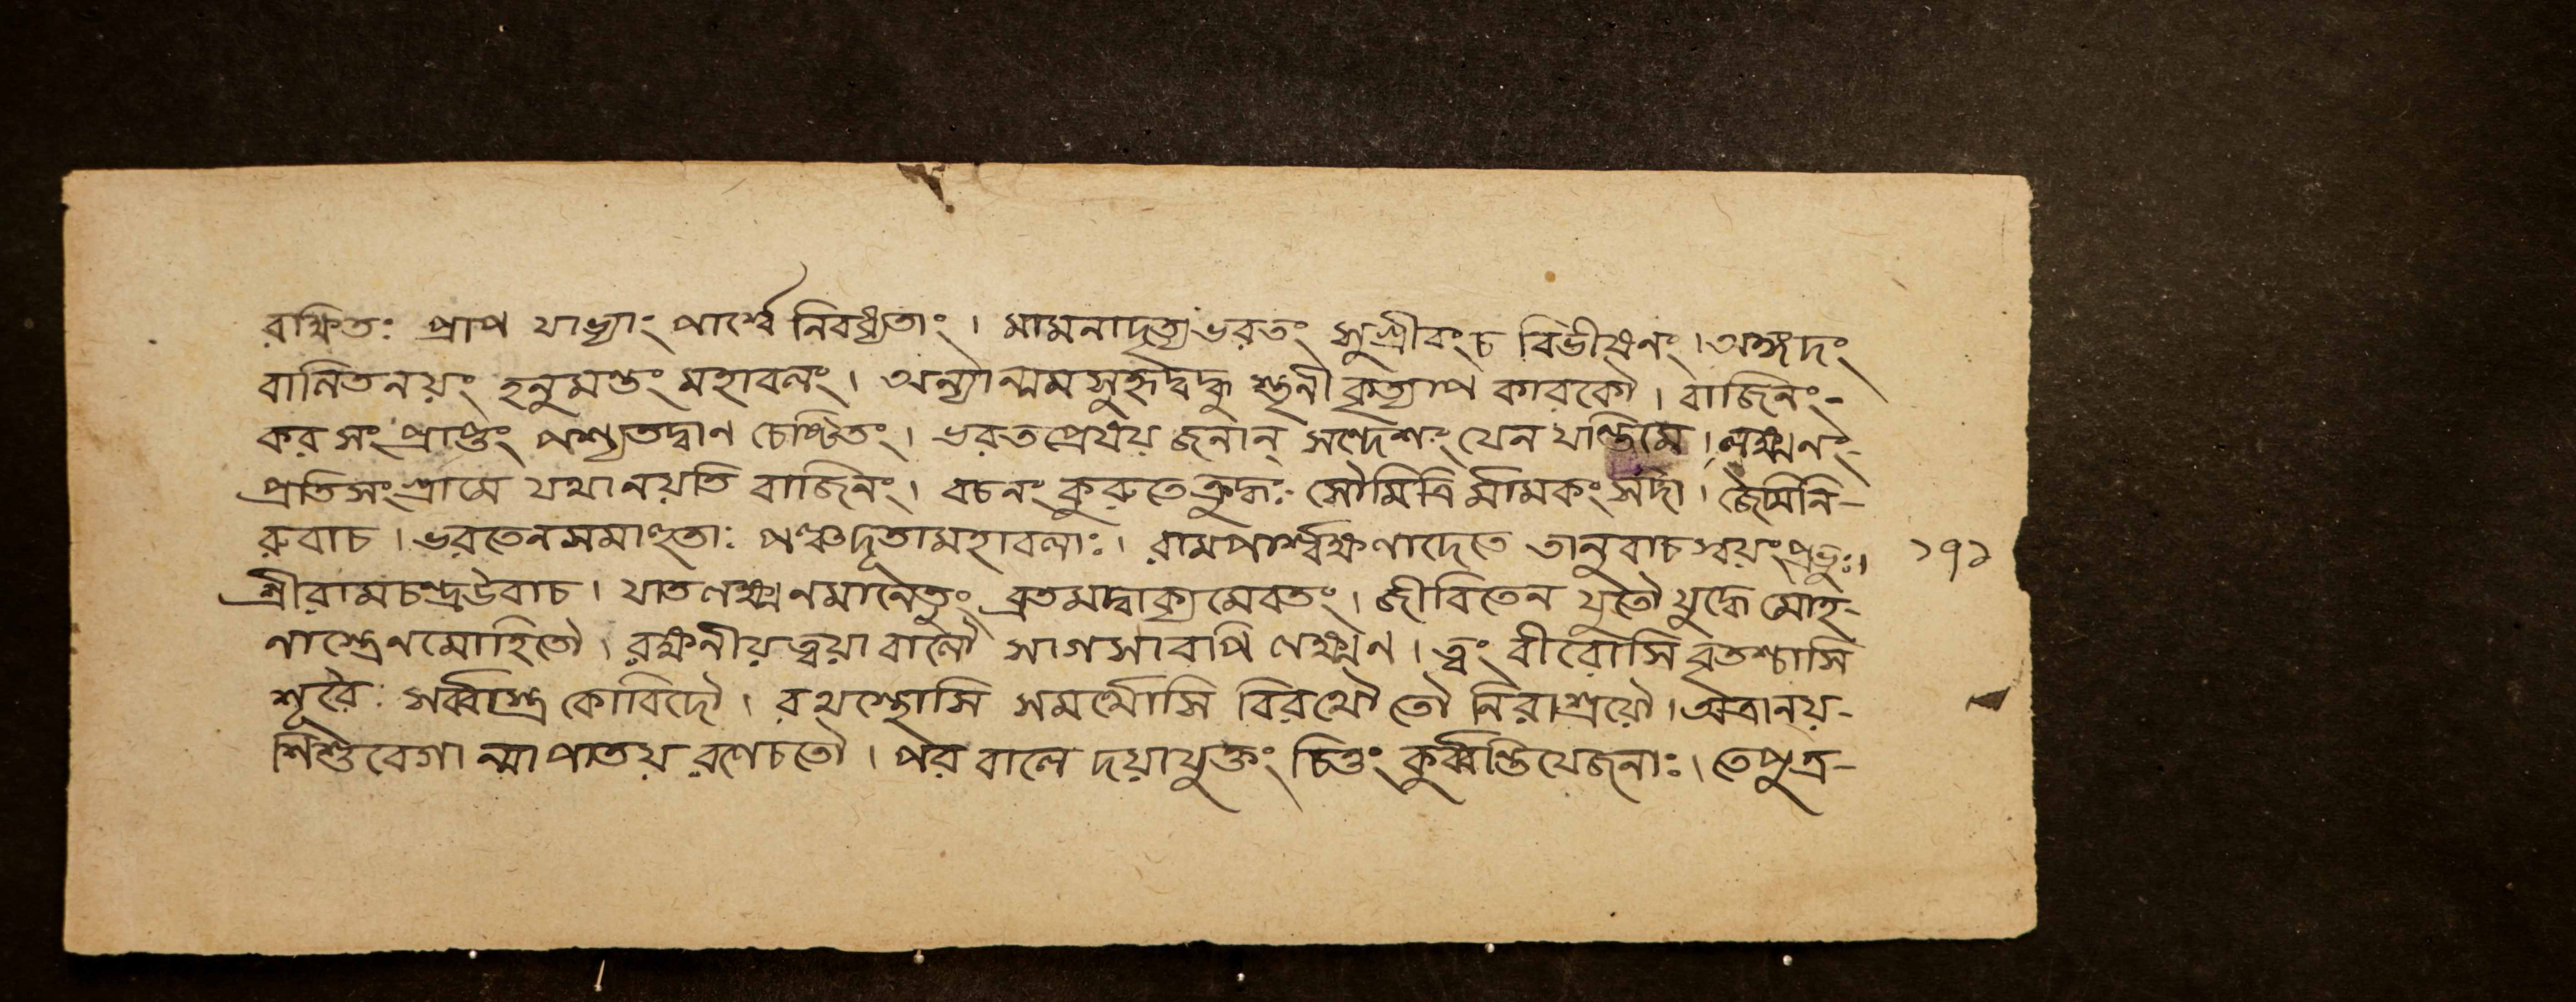 রক্ষিতঃ প্রাপ যাভ্যাং পার্শ্বে নিবধ্যতাং । মামনাদৃত্য ভরতং সুগ্রীবং চ বিভীষনং । অঙ্গদং
বালিতনয়ং হনুমন্তং মহাবলং । অন্যান্মম সুহৃদ্বন্ধু শুনী কৃত্যাপ কারকৌ । বাজিনং-
কর সং প্রাপ্তং পশ্যতদ্বাণ চেষ্টিতং । ভরত প্রেষয় জনান্ সন্দেশং যেন যান্তি মে । লক্ষ্মণং-
প্রতি সংগ্রামে যথানয়তি বাজিনং । বচনং কুরুতে ক্রুদ্ধঃ সৌমিত্রি র্মামকং সদা । জৈমিনি-
রুবাচ । ভরতেন সমাহুতাঃ পঞ্চদূতা মহাবলাঃ । রামপার্শ্বক্ষণাদেতে তানুবাচ স্বয়ং প্রভুঃ । ১৭১
শ্রীরামচন্দ্র উবাচ । যাত লক্ষ্মণমানেতুং ব্রুত মদ্বাক্য মেবতং । জীবিতেন যুতৌ যুদ্ধে মোহ-
নাস্ত্রেণ মোহিতৌ । রক্ষনীয় ত্বয়া বালৌ সাগসাবপি লক্ষ্মণ । ত্বং বীরোসি বৃতশ্চাসি
শূরৈঃ সর্ব্বাস্ত্র কোবিদৌ । রথস্থোসি সমর্থোসি বিরথৌ তৌ নিরাশ্রয়ৌ । অত্রানয়-
শিশু বেগা ন্মা পাতয় রণেচতৌ । পর বালে দয়াযুক্তং চিত্তং কুর্ব্বন্তি যেজনাঃ । তে পুত্র-